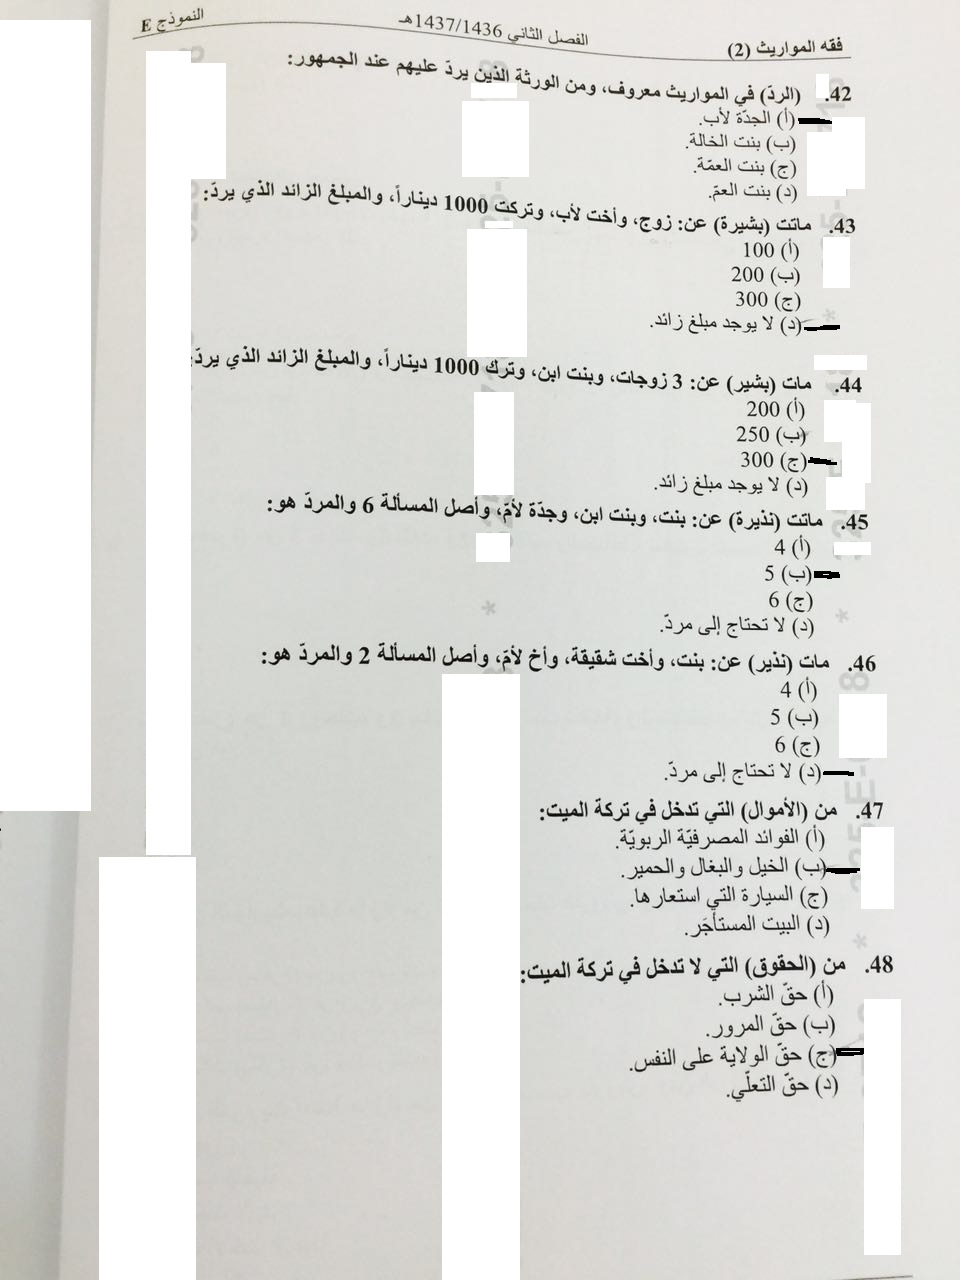 فقه المواريث (2)
الفصل الثاني 1437/1436هـ
النموذج E
42. (الردّ) في المواريث معروف، ومن الورثة الذين يردّ عليهم عند الجمهور:
(أ) الجدّة لأب.
(ب) بنت الخالة.
(ج) بنت العمّة.
(د) بنت العمّ.
43. ماتت (بشيرة) عن: زوج، وأخت لأب، وتركت 1000 ديناراً، والمبلغ الزائد الذي يردّ:
(أ) 100
(ب) 200
(ج) 300
(د) لا يوجد مبلغ زائد.
44. مات (بشير) عن: 3 زوجات، وبنت ابن، وترك 1000 ديناراً، والمبلغ الزائد الذي يردّ:
(أ) 200
(ب) 250
(ج) 300
(د) لا يوجد مبلغ زائد.
45. ماتت (نذيرة) عن: بنت، وبنت ابن، وجدّة لأمّ، وأصل المسألة 6 والمردّ هو:
(أ) 4
(ب) 5
(ج) 6
(د) لا تحتاج إلى مردّ.
46. مات (نذير) عن: بنت، وأخت شقيقة، وأخ لأمّ، وأصل المسألة 2 والمردّ هو:
(أ) 4
(ب) 5
(ج) 6
(د) لا تحتاج إلى مردّ.
47. من (الأموال) التي تدخل في تركة الميت:
(أ) الفوائد المصرفيّة الربويّة.
(ب) الخيل والبغال والحمير.
(ج) السيارة التي استعارها.
(د) البيت المستأجَر.
48. من (الحقوق) التي لا تدخل في تركة الميت:
(أ) حقّ الشرب.
(ب) حقّ المرور.
(ج) حقّ الولاية على النفس.
(د) حقّ التعلّي.